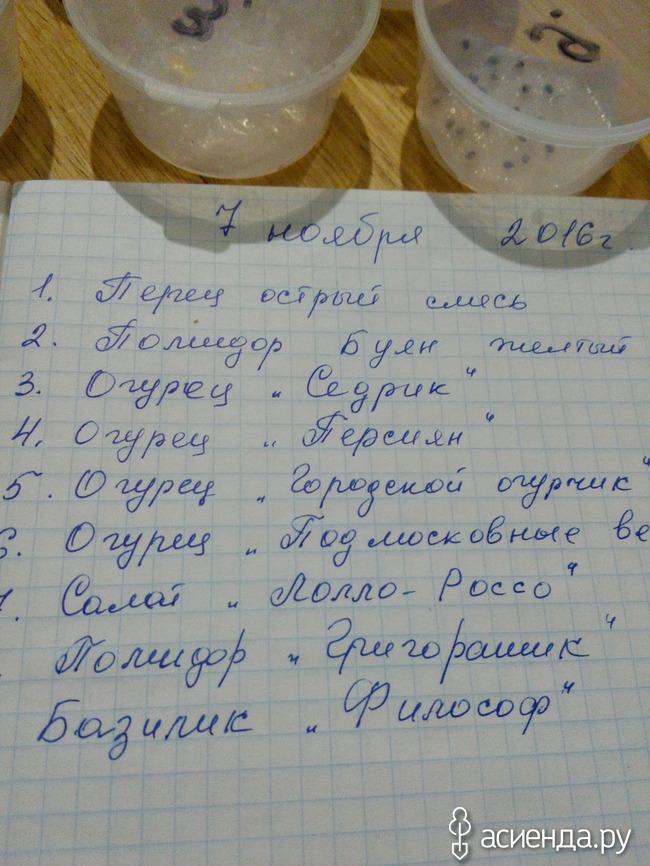 3.
2.
7 ноября 2016г.
1. Перец острый смесь
2. Помидор Буян желтый
3. Огурец „Седрик"
4. Огурец „Персиян"
5. Огурец „Городской огурчик"
6. Огурец „Подмосковные ве
7. Салат „Лолло-Россо"
Помидор „Григорашик"
Базилик „Философ"
асиенда.ру